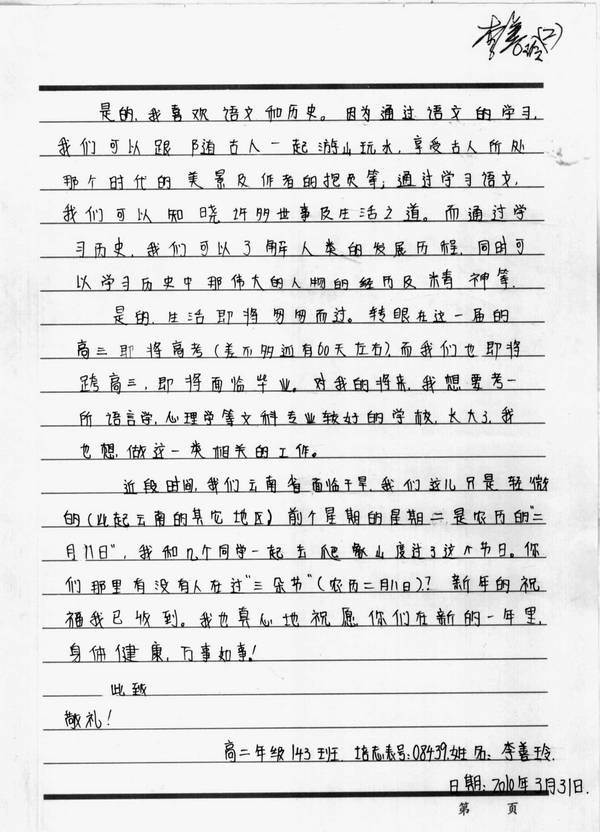 李善玲(2)
是的,我喜欢语文和历史。因为通过语文的学习,
我们可以跟随古人一起游山玩水,享受古人所处
那个时代的美景及作者的抱负等;通过学习语文,
我们可以知晓许多世事及生活之道。而通过学
习历史,我们可以了解人类的发展历程,同时可
以学习历史中那伟大的人物的经历及精神等.
是的,生活即将匆匆而过。转眼在这一届的
高三即将高考(差不多还有60天左右),而我们也即将
跨高三,即将面临毕业。对我的将来,我想要考一
所语言学,心理学等文科专业较好的学校,长大了,我
也想做这一类相关的工作。
近段时间,我们云南省面临干旱,我们这儿只是轻微
的(比起云南的其它地区)前个星期的星期二,是农历的"二
月八日",我和几个同学一起去爬象山度过了这个节日。你
们那里有没有人在过"三朵节"(农历二月八日)?新年的祝
福我已收到。我也真心地祝愿你们在新的一年里,
身体健康,万事如事!
此致
敬礼!
高二年级143班 培志表号:08439.姓名:李善玲.
日期:2010年3月31日.
第 页